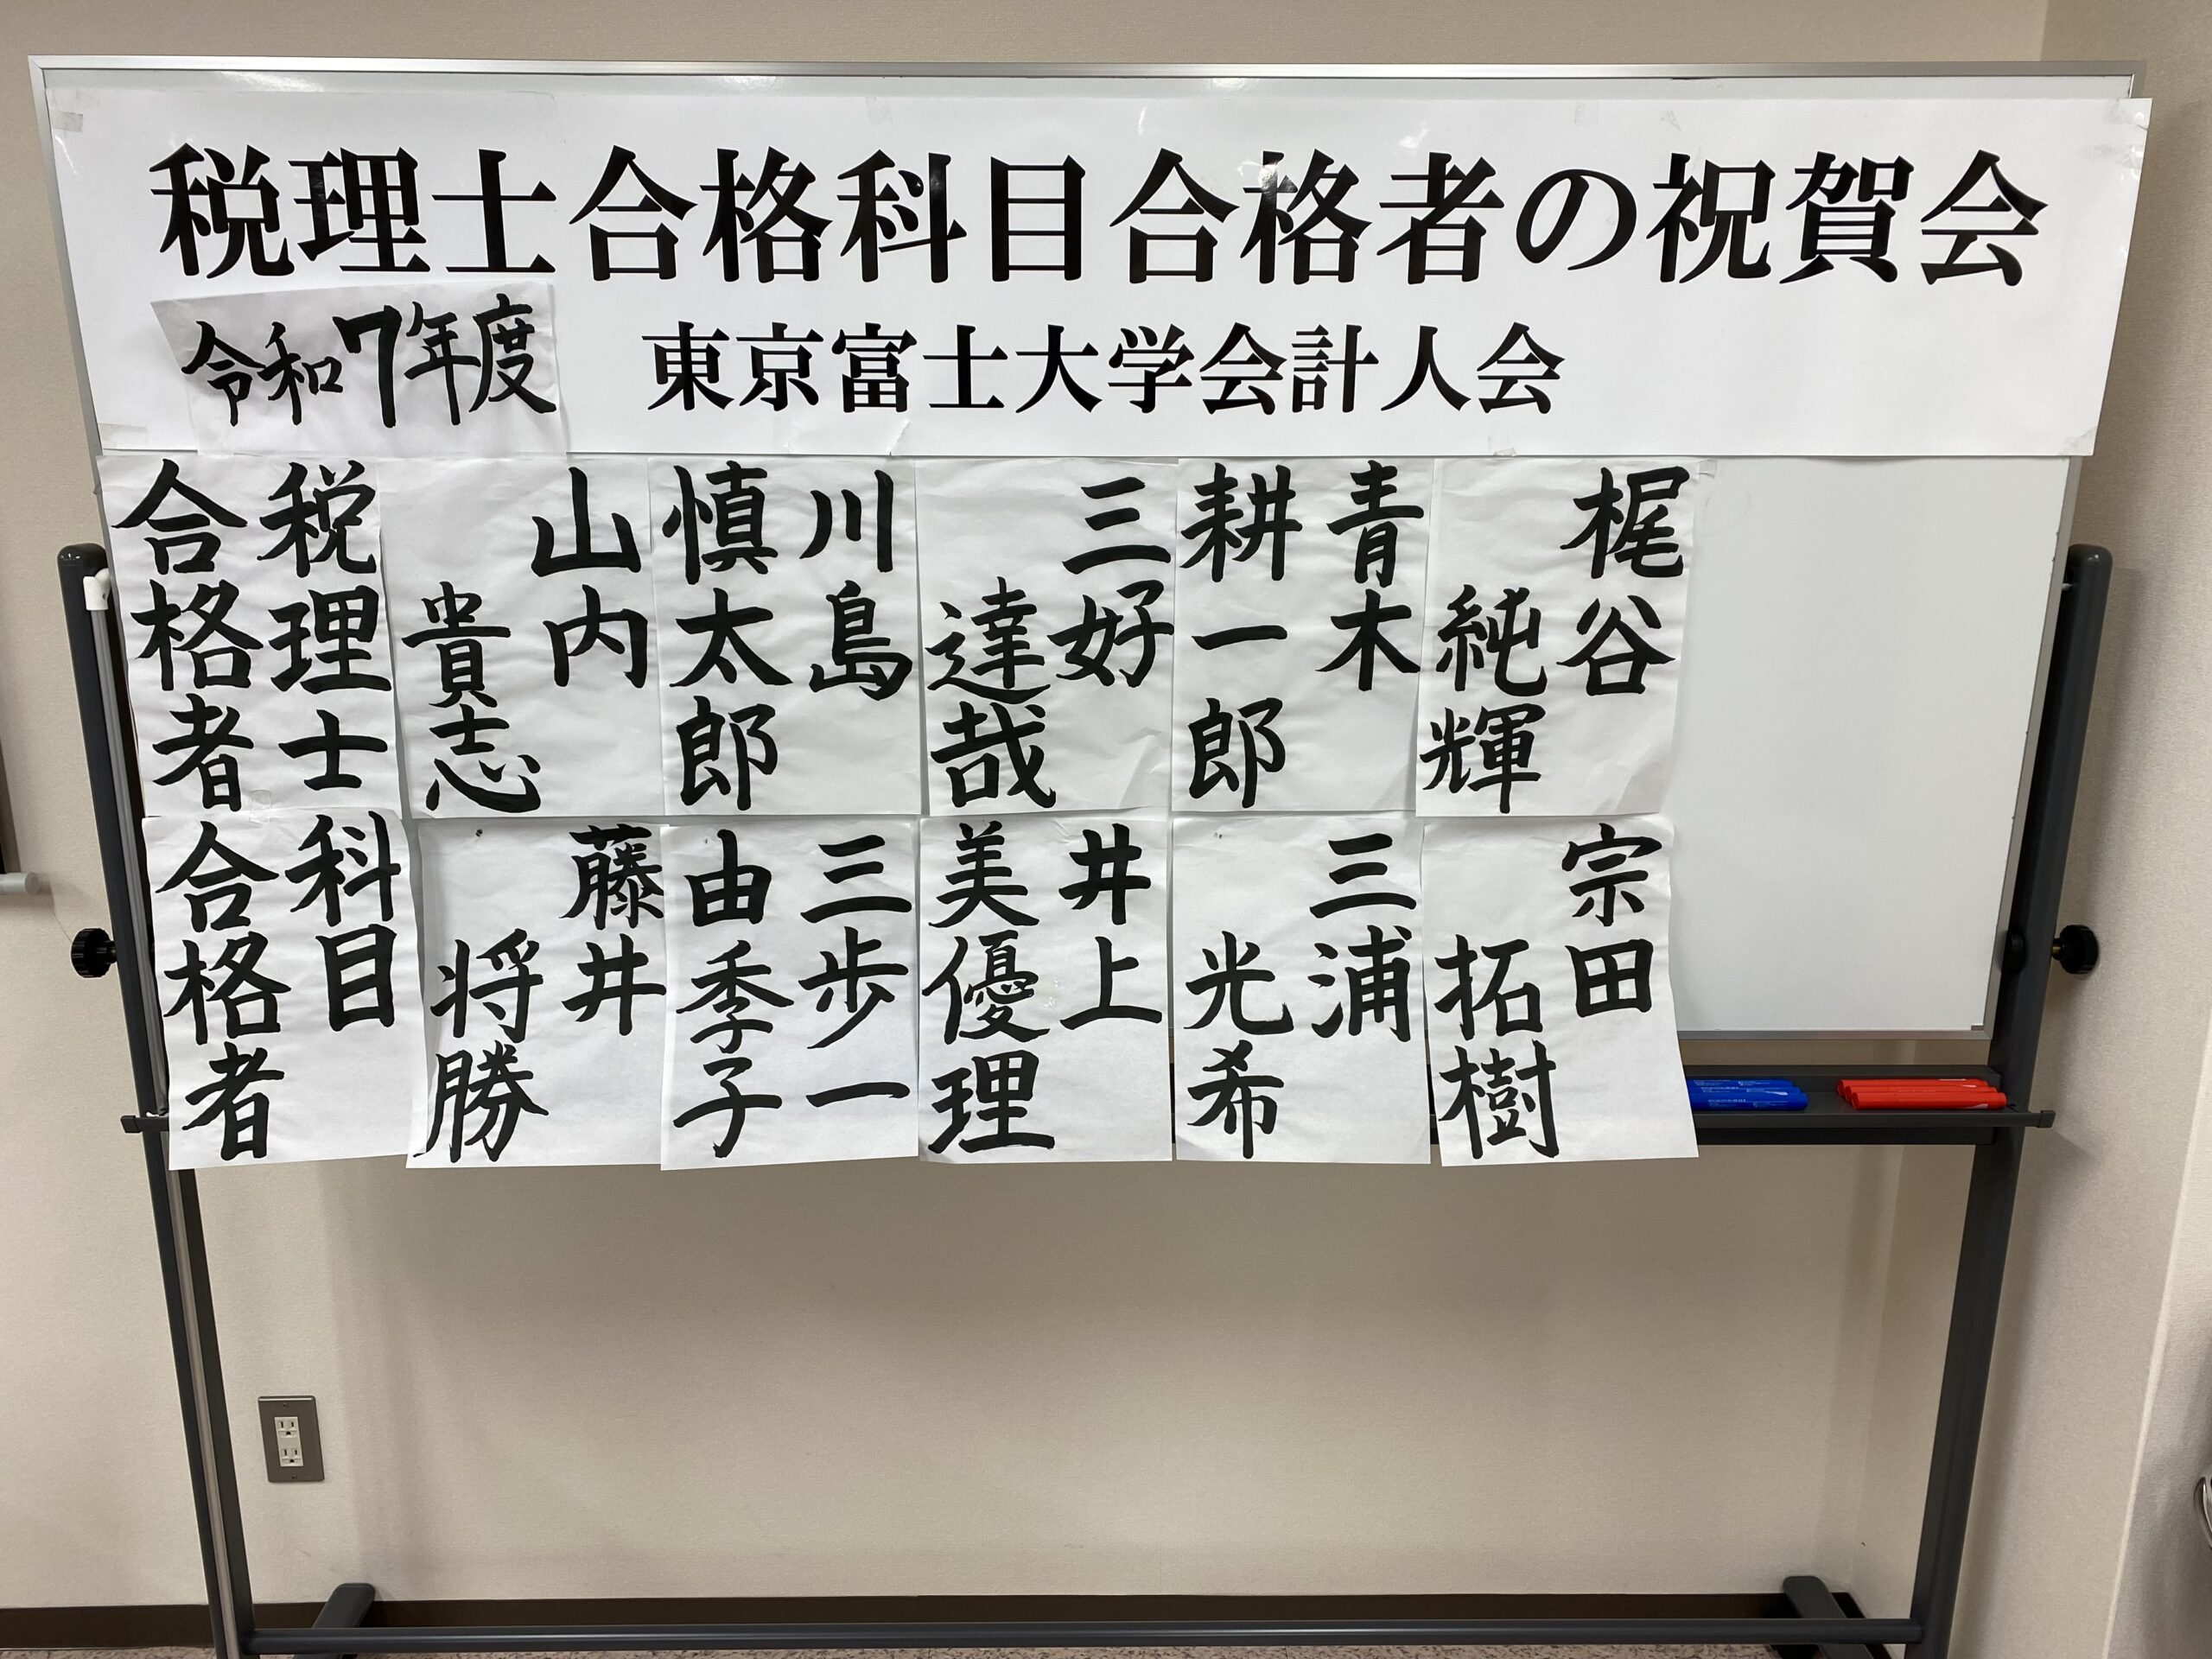 税理士合格科目合格者の祝賀会
令和7年度 東京富士大学会計人会
税理士
合格者
山内
貴志
川島
慎太郎
三好
達哉
青木
耕一郎
梶谷
純輝
科目
合格者
藤井
将勝
三歩一
由季子
井上
美優理
三浦
光希
宗田
拓樹